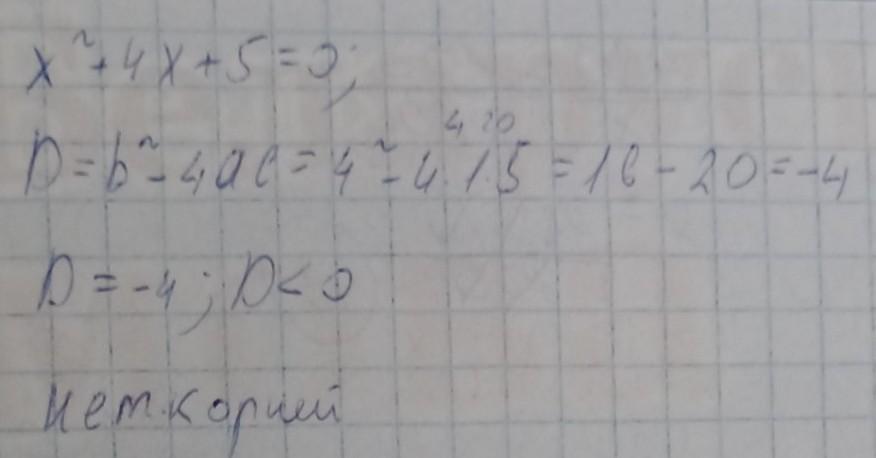 x² + 4x + 5 = 0;
4 20
D = b² - 4ac = 4² - 4·1·5 = 16 - 20 = -4
D = -4; D < 0
нет корней